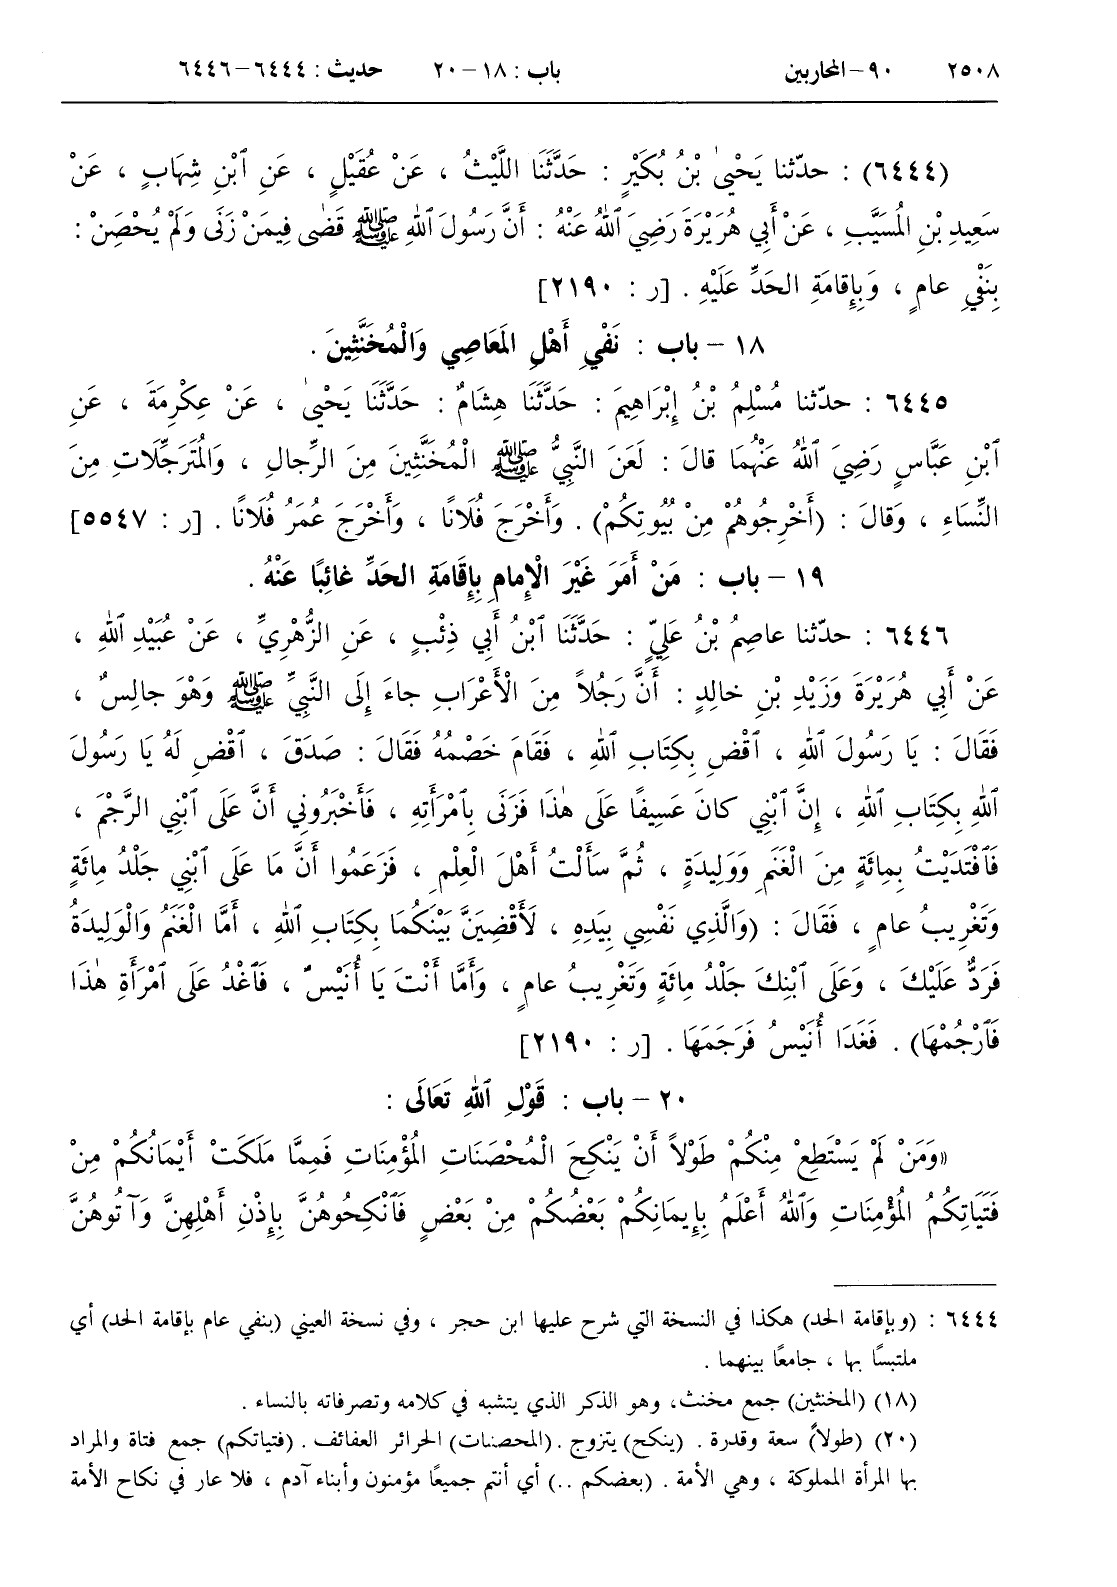 ٢٥٠٨ ٩٠-المحاربين باب : ١٨-٢٠ حديث : ٦٤٤٤-٦٤٤٦
(٦٤٤٤) : حدّثنا يَحْيىٰ بْنُ بُكَيْرٍ : حَدَّثَنَا اللَّيْثُ ، عَنْ عُقَيْلٍ ، عَنِ ٱبْنِ شِهَابٍ ، عَنْ
سَعِيدِ بْنِ المُسَيَّبِ ، عَنْ أَبِي هُرَيْرَةَ رَضِيَ ٱللهُ عَنْهُ : أَنَّ رَسُولَ ٱللهِ ﷺ قَضٰى فِيمَنْ زَنَى وَلَمْ يُحْصَنْ :
بِنَفْيِ عامٍ ، وَبِإِقامَةِ الحَدِّ عَلَيْهِ . [ر : ٢١٩٠]
١٨ – باب : نَفْيِ أَهْلِ المَعَاصِي وَالْمُخَنَّثِينَ .
٦٤٤٥ : حدّثنا مُسْلِمُ بْنُ إِبْرَاهِيمَ : حَدَّثَنَا هِشَامٌ : حَدَّثَنَا يَحْيىٰ ، عَنْ عِكْرِمَةَ ، عَنِ
ٱبْنِ عَبَّاسٍ رَضِيَ ٱللهُ عَنْهُمَا قالَ : لَعَنَ النَّبِيُّ ﷺ الْمُخَنَّثِينَ مِنَ الرِّجالِ ، وَالمُتَرَجِّلَاتِ مِنَ
النِّسَاءِ ، وَقالَ : (أَخْرِجُوهُمْ مِنْ بُيُوتِكُمْ) . وَأَخْرَجَ فُلَانًا ، وَأَخْرَجَ عُمَرُ فُلَانًا . [ر : ٥٥٤٧]
١٩ – باب : مَنْ أَمَرَ غَيْرَ الْإِمامِ بِإِقَامَةِ الحَدِّ غائِبًا عَنْهُ .
٦٤٤٦ : حدّثنا عاصِمُ بْنُ عَلِيٍّ : حَدَّثَنَا ٱبْنُ أَبِي ذِئْبٍ ، عَنِ الزُّهْرِيِّ ، عَنْ عُبَيْدِ ٱللهِ ،
عَنْ أَبِي هُرَيْرَةَ وَزَيْدِ بْنِ خالِدٍ : أَنَّ رَجُلاً مِنَ الْأَعْرَابِ جاءَ إِلَى النَّبِيِّ ﷺ وَهْوَ جالِسٌ ،
فَقَالَ : يَا رَسُولَ ٱللهِ ، ٱقْضِ بِكِتَابِ ٱللهِ ، فَقَامَ خَصْمُهُ فَقَالَ : صَدَقَ ، ٱقْضِ لَهُ يَا رَسُولَ
ٱللهِ بِكِتَابِ ٱللهِ ، إِنَّ ٱبْنِي كانَ عَسِيفًا عَلَى هٰذَا فَزَنَى بِٱمْرَأَتِهِ ، فَأَخْبَرُونِي أَنَّ عَلَى ٱبْنِي الرَّجْمَ ،
فَٱفْتَدَيْتُ بِمِائَةٍ مِنَ الْغَنَمِ وَوَلِيدَةٍ ، ثُمَّ سَأَلْتُ أَهْلَ الْعِلْمِ ، فَزَعَمُوا أَنَّ مَا عَلَى ٱبْنِي جَلْدُ مِائَةٍ
وَتَغْرِيبُ عامٍ ، فَقَالَ : (وَالَّذِي نَفْسِي بِيَدِهِ ، لَأَقْضِيَنَّ بَيْنَكُمَا بِكِتَابِ ٱللهِ ، أَمَّا الْغَنَمُ وَالْوَلِيدَةُ
فَرَدٌّ عَلَيْكَ ، وَعَلَى ٱبْنِكَ جَلْدُ مِائَةٍ وَتَغْرِيبُ عامٍ ، وَأَمَّا أَنْتَ يَا أُنَيْسُ ، فَٱغْدُ عَلَى ٱمْرَأَةِ هٰذَا
فَٱرْجُمْهَا) . فَغَدَا أُنَيْسُ فَرَجَمَهَا . [ر : ٢١٩٠]
٢٠ – باب : قَوْلِ ٱللهِ تَعَالَى :
«وَمَنْ لَمْ يَسْتَطِعْ مِنْكُمْ طَوْلاً أَنْ يَنْكِحَ الْمُحْصَنَاتِ المُؤْمِنَاتِ فَمِمَّا مَلَكَتْ أَيْمَانُكُمْ مِنْ
فَتَيَاتِكُمُ المُؤْمِنَاتِ وَٱللهُ أَعْلَمُ بِإِيمَانِكُمْ بَعْضُكُمْ مِنْ بَعْضٍ فَٱنْكِحُوهُنَّ بِإِذْنِ أَهْلِهِنَّ وَآتُوهُنَّ
٦٤٤٤ : (وبإقامة الحد) هكذا في النسخة التي شرح عليها ابن حجر ، وفي نسخة العيني (بنفي عام بإقامة الحد) أي
ملتبسًا بها ، جامعًا بينهما .
(١٨) (المخنثين) جمع مخنث، وهو الذكر الذي يتشبه في كلامه وتصرفاته بالنساء .
(٢٠) (طولاً) سعة وقدرة . (ينكح) يتزوج . (المحصنات) الحرائر العفائف . (فتياتكم) جمع فتاة والمراد
بها المرأة المملوكة ، وهي الأمة . (بعضكم ..) أي أنتم جميعًا مؤمنون وأبناء آدم ، فلا عار في نكاح الأمة